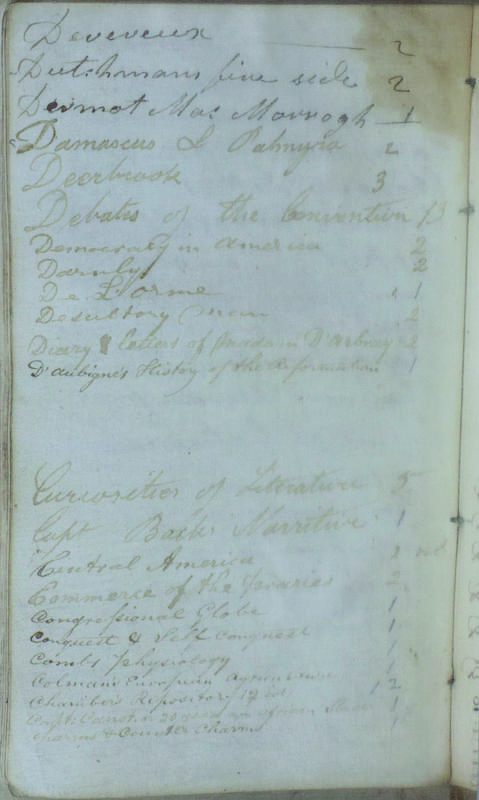 Devereux 2
Dutchmans fire side 2
Dermot Mac Morrogh 1
Damascus & Palmyra 2
Deerbrook 3
Debates of the Convention 13
Democracy in America 2
Darnly 2
De L'orme 1
Desultory man 2
Diary & letters of Madam D'arbray 2
D'aubigne's History of the Reformation 1
Curiosities of Literature 5
Capt Backs Narritive 1
Central America 2 vol
Commerce of the Praries 2
Congressional Globe 1
Conquest & Self Conquest 1
Combs Physiology 1
Colmans European Agriculture 1
Chambers Repository 12 vols 12
Capt. Canot or 20 years an african Slaver 1
Charms & Counter Charms 1